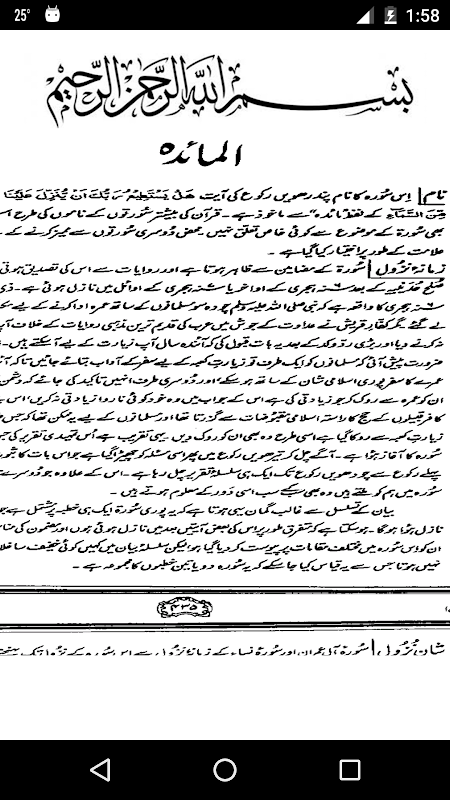 25° 1:58
بسم الله الرحمن الرحیم
المائدہ
نام | اِس سُورہ کا نام پندرھویں رکوع کی آیت ھَلْ یَسْتَطِیْعُ رَبُّكَ اَنْ یُّنَزِّلَ عَلَیْنَا
مِنَ السَّمَآءِ کے لفظ "مائدہ" سے ماخوذ ہے۔ قرآن کی بیشتر سُورتوں کے ناموں کی طرح اس
بھی سُورۃ کے موضوع سے کوئی خاص تعلق نہیں۔ محض دُوسری سُورتوں سے ممیز کرنے کے
علامت کے طور پر اختیار کیا گیا ہے۔
زمانۂ نزُول | سُورۃ کے مضامین سے ظاہر ہوتا ہے اور روایات سے اس کی تصدیق ہوتی
صُلح حُدَیبیَہ کے بعد سنہ ہجری کے اواخر یا سنہ ہجری کے اوائل میں نازل ہوئی ہے۔ ذی
سنہ ہجری کا واقعہ ہے کہ نبی صلی اللہ علیہ وسلم چودہ سو مسلمانوں کے ساتھ عمرہ ادا کرنے کے لیے
لے گئے مگر کفارِ قریش نے عداوت کے جوش میں عرب کی قدیم ترین مذہبی روایات کے خلاف آپ
نہ کرنے دیا اور بڑی ردّ و کد کے بعد یہ بات قبول کی کہ آئندہ سال آپ زیارت کے لیے آسکتے ہیں۔
ضرورت پیش آئی کہ مسلمانوں کو ایک طرف تو زیارتِ کعبہ کے لیے سفر کے آداب بتائے جائیں تاکہ
عمرے کا سفر پوری اسلامی شان کے ساتھ ہوسکے، اور دُوسری طرف انہیں تاکید کی جائے کہ دشمن
ان کو عمرہ سے روک کر جو زیادتی کی ہے اس کے جواب میں وہ خود کوئی ناروا زیادتی نہ کریں، اس
کافر قبیلوں کے حج کا راستہ اسلامی مقبوضات سے گزرتا تھا اور مسلمانوں کے لیے یہ ممکن تھا کہ جس
زیارتِ کعبہ سے روکا گیا ہے اسی طرح وہ بھی ان کو روک دیں۔ یہی تقریب ہے اُس تمہیدی تقریر کی جس
سُورۃ کا آغاز ہوا ہے۔ آگے چل کر تیرھویں رکوع میں پھر اسی مسئلہ کو چھیڑا گیا ہے جو اس بات کا ثبوت
پہلے رکوع سے چودھویں رکوع تک ایک ہی سلسلۂ تقریر چل رہا ہے۔ اس کے علاوہ جو دُوسرے
سُورۃ میں ہم کو ملتے ہیں وہ بھی سب کے سب اسی دَور کے معلوم ہوتے ہیں۔
بیان کے تسلسل سے غالب گمان یہی ہوتا ہے کہ یہ پوری سُورۃ ایک ہی خطبہ پر مشتمل ہے
نازل ہوا ہوگا۔ ہوسکتا ہے کہ متفرق طور پر اس کی بعض آیتیں بعد میں نازل ہوئی ہوں اور مضمون کی
ان کو اس سُورۃ میں مختلف مقامات پر پیوست کر دیا گیا ہو، لیکن سلسلۂ بیان میں کہیں کوئی خفیف سا خلا
نہیں ہوتا جس سے یہ قیاس کیا جاسکے کہ یہ سُورہ دو یا تین خطبوں کا مجموعہ ہے۔
۴۳۵
شانِ نُزُول | سُورۂ آل عمران اور سُورۂ نساء کے زمانۂ نزول سے اس سُورہ کے نزول تک